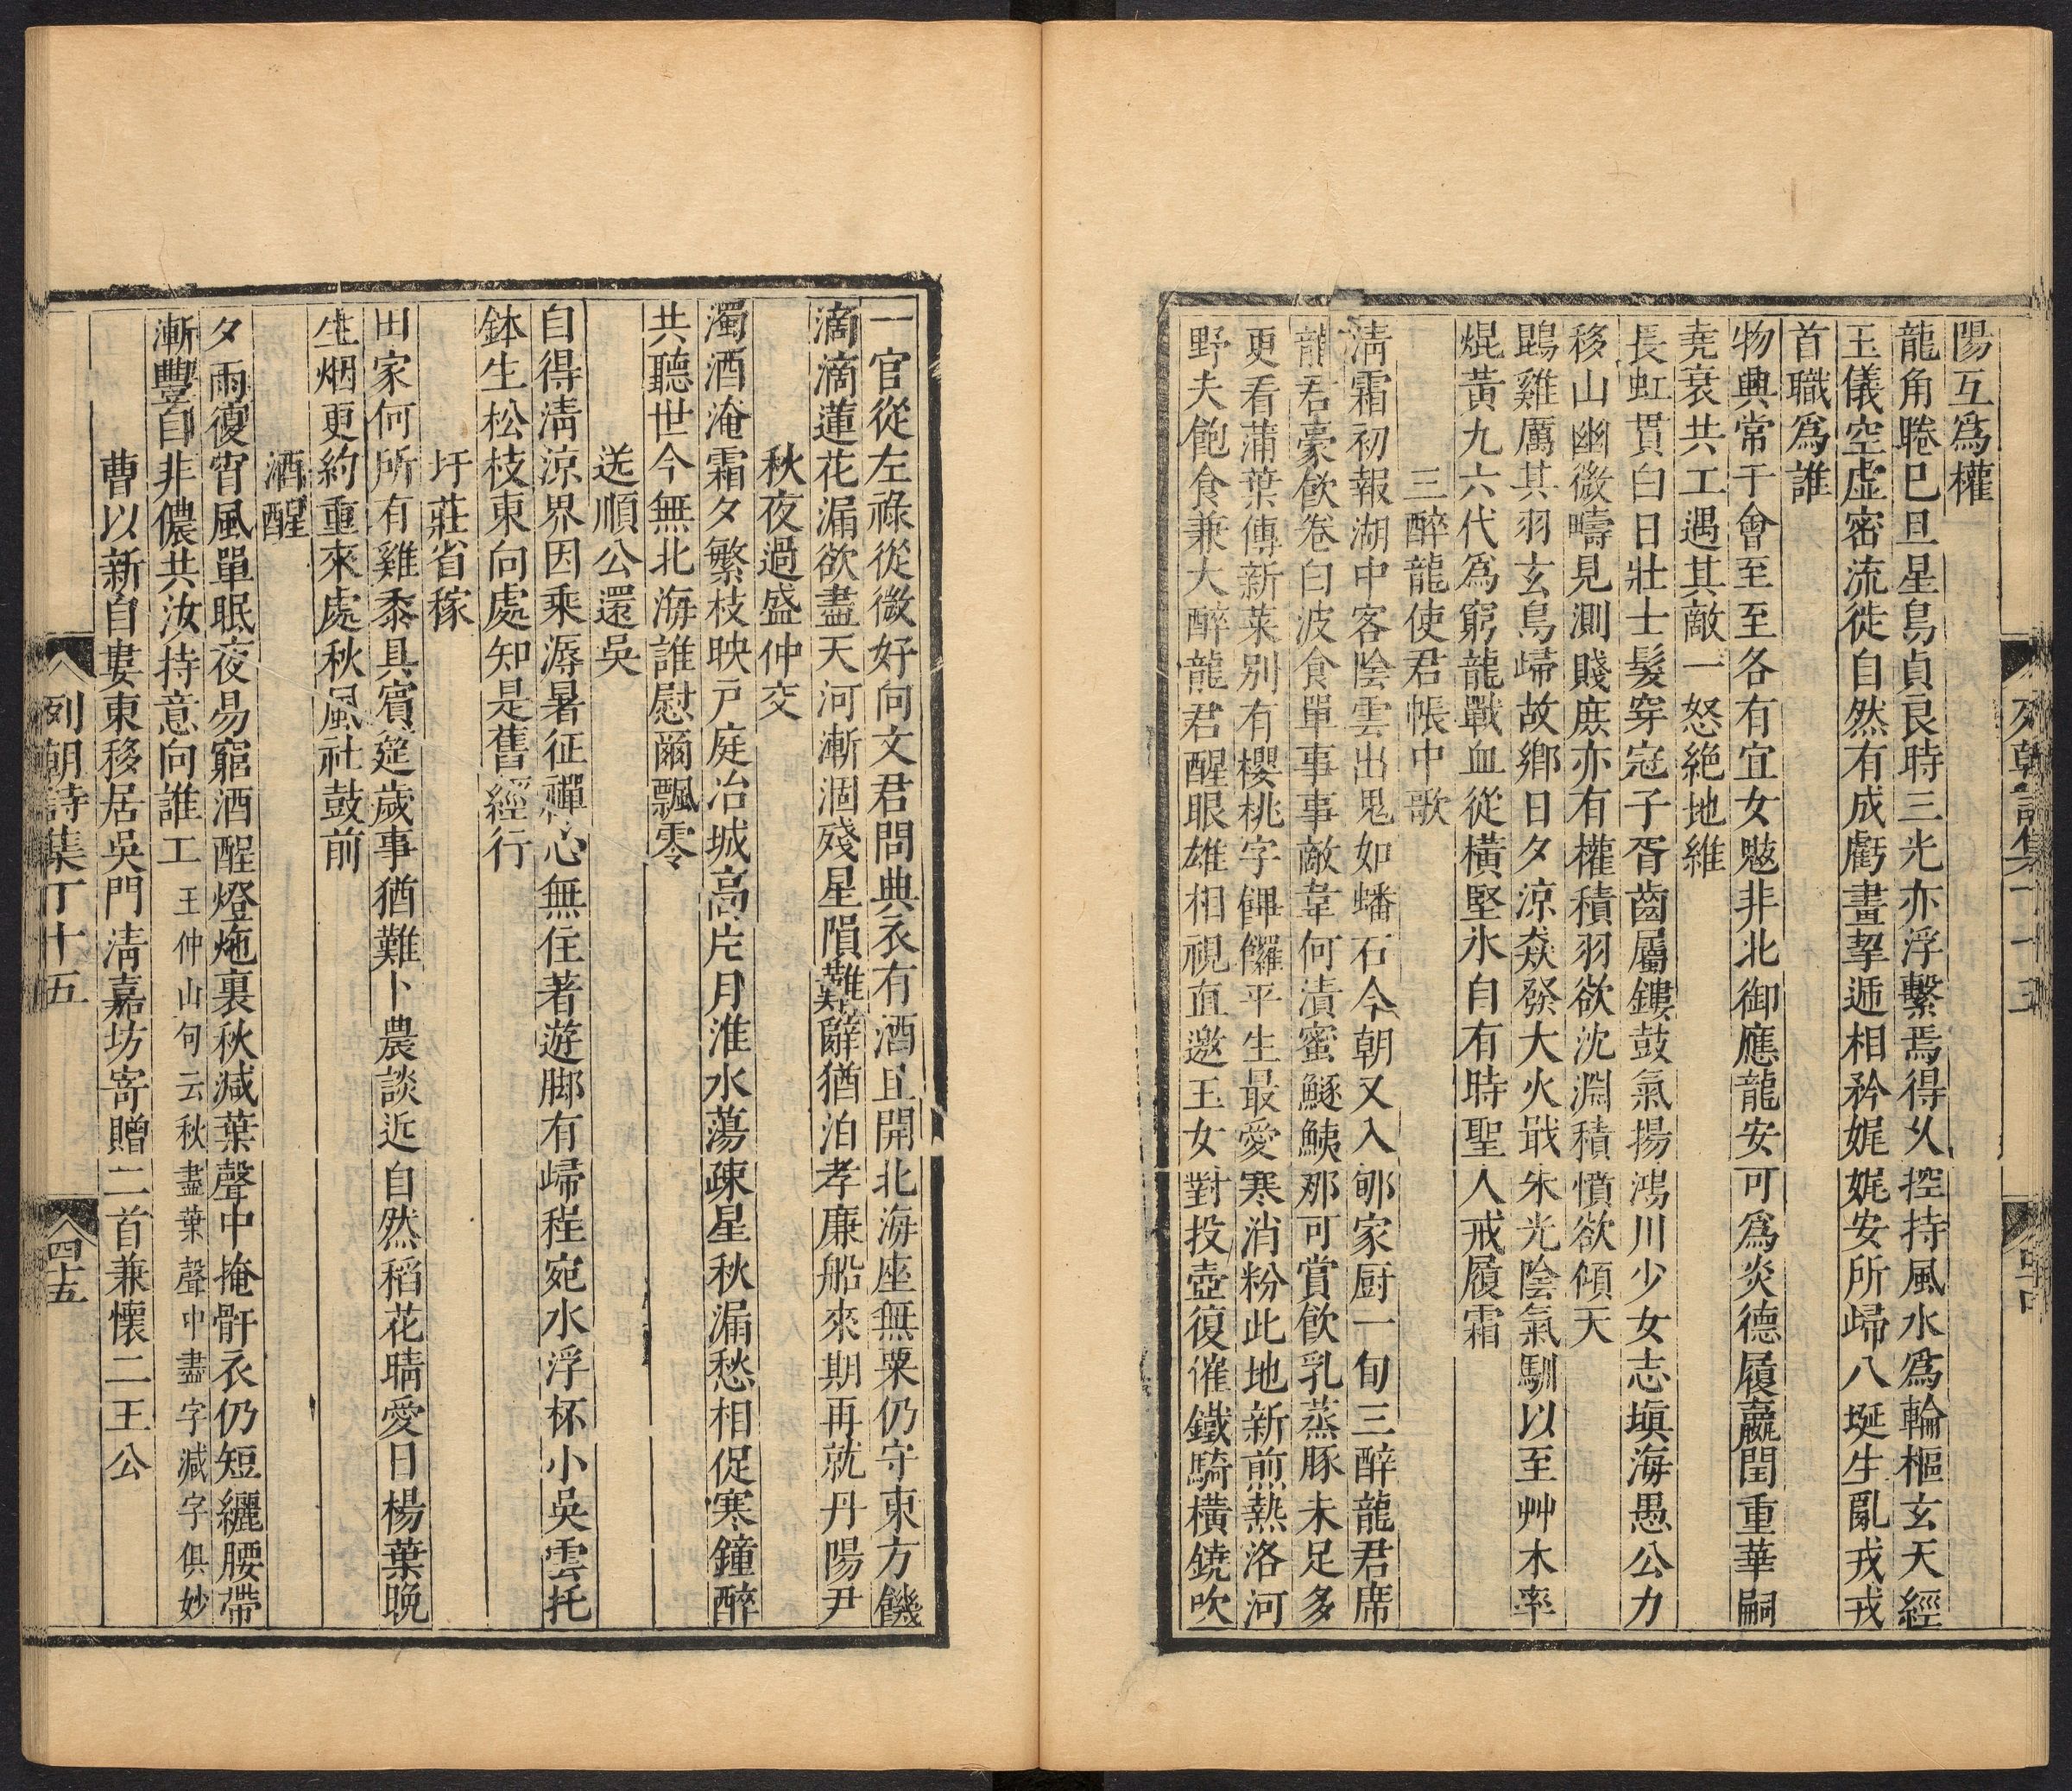 陽互爲權
龍角睠巳旦星鳥貞良時三光亦浮繫焉得久控持風水爲輪樞玄天經
玉儀空虛密流徙自然有成虧畫挈遞相矜娓娓安所歸八埏生亂戎戎
首職爲誰
物典常于會至至各有宜女魃非北御應龍安可爲炎德履嬴閏重華嗣
堯衰共工遇其敵一怒絶地維
長虹貫白日壯士髮穿冠子胥齒屬鏤鼓氣揚鴻川少女志塡海愚公力
移山幽微疇見測賤庶亦有權積羽欲沈淵積憤欲傾天
鵾雞厲其羽玄鳥歸故鄉日夕涼猋發大火戢朱光陰氣馴以至艸木率
焜黃九六代爲窮龍戰血從橫堅氷自有時聖人戒履霜
三醉龍使君帳中歌
淸霜初報湖中客陰雲出鬼如蟠石今朝又入郇家厨一旬三醉龍君席
龍君豪飲卷白波食單事事敵韋何漬蜜鱁鮧那可賞飲乳蒸豚未足多
更看蒲葉傳新菜別有櫻桃字饆饠平生最愛寒消粉此地新煎熱洛河
野夫飽食兼大醉龍君醒眼雄相視直邀玉女對投壺復催鐵騎橫鐃吹
列朝詩集丁十五
一官從左祿從微好向文君問典衣有酒且開北海座無粟仍守東方饑
滴滴蓮花漏欲盡天河漸涸殘星隕難辭猶泊孝廉船來期再就丹陽尹
秋夜過盛仲交
濁酒淹霜夕繁枝映戸庭冶城高片月淮水蕩疎星秋漏愁相促寒鐘醉
共聽世今無北海誰慰爾飄零
送順公還吳
自得淸涼界因乘溽暑征禪心無住著遊脚有歸程宛水浮杯小吳雲托
鉢生松枝東向處知是舊經行
圩莊省稼
田家何所有雞黍具賓筵歲事猶難卜農談近自然稻花晴愛日楊葉晚
生烟更約重來處秋風社鼓前
酒醒
夕雨復宵風單眠夜易窮酒醒燈灺裏秋減葉聲中掩骭衣仍短纚腰帶
漸豐自非儂共汝持意向誰工 王仲山句云秋盡葉聲中盡字減字俱妙
曹以新自婁東移居吳門淸嘉坊寄贈二首兼懷二王公
列朝詩集丁十五
四十五